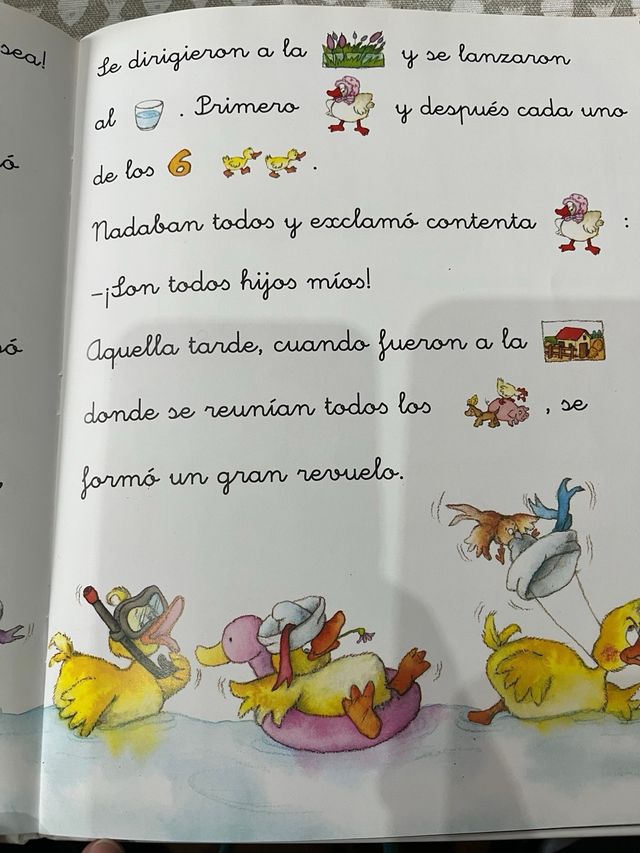 sea!
Se dirigieron a la y se lanzaron
al . Primero y después cada uno
de los 6 .
Nadaban todos y exclamó contenta :
–¡Son todos hijos míos!
Aquella tarde, cuando fueron a la
donde se reunían todos los , se
formó un gran revuelo.